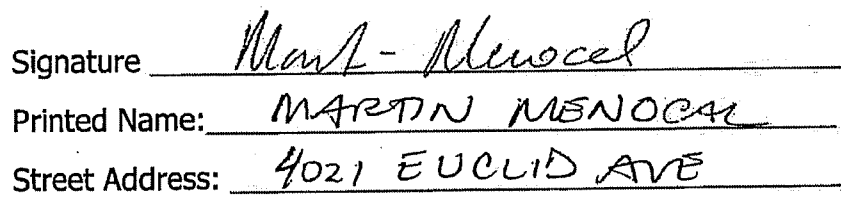 Signature Mart - Menocal
Printed Name: MARTIN MENOCAL
Street Address: 4021 EUCLID AVE